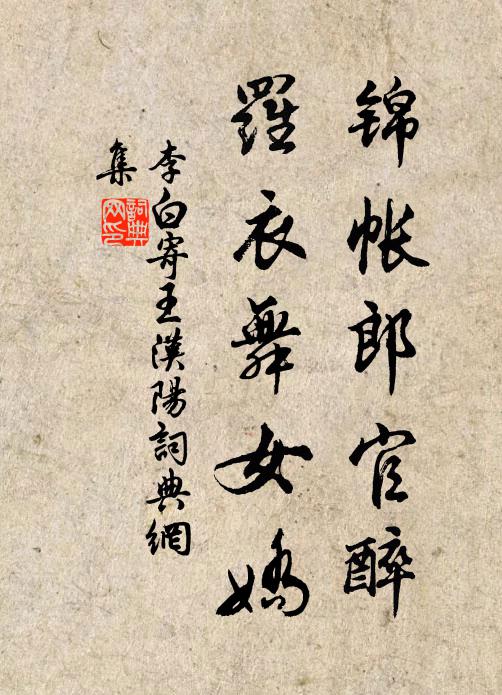 锦帐郎官醉
羅衣舞女嬌
李白寄王漢陽詞典網
集
詞典网印